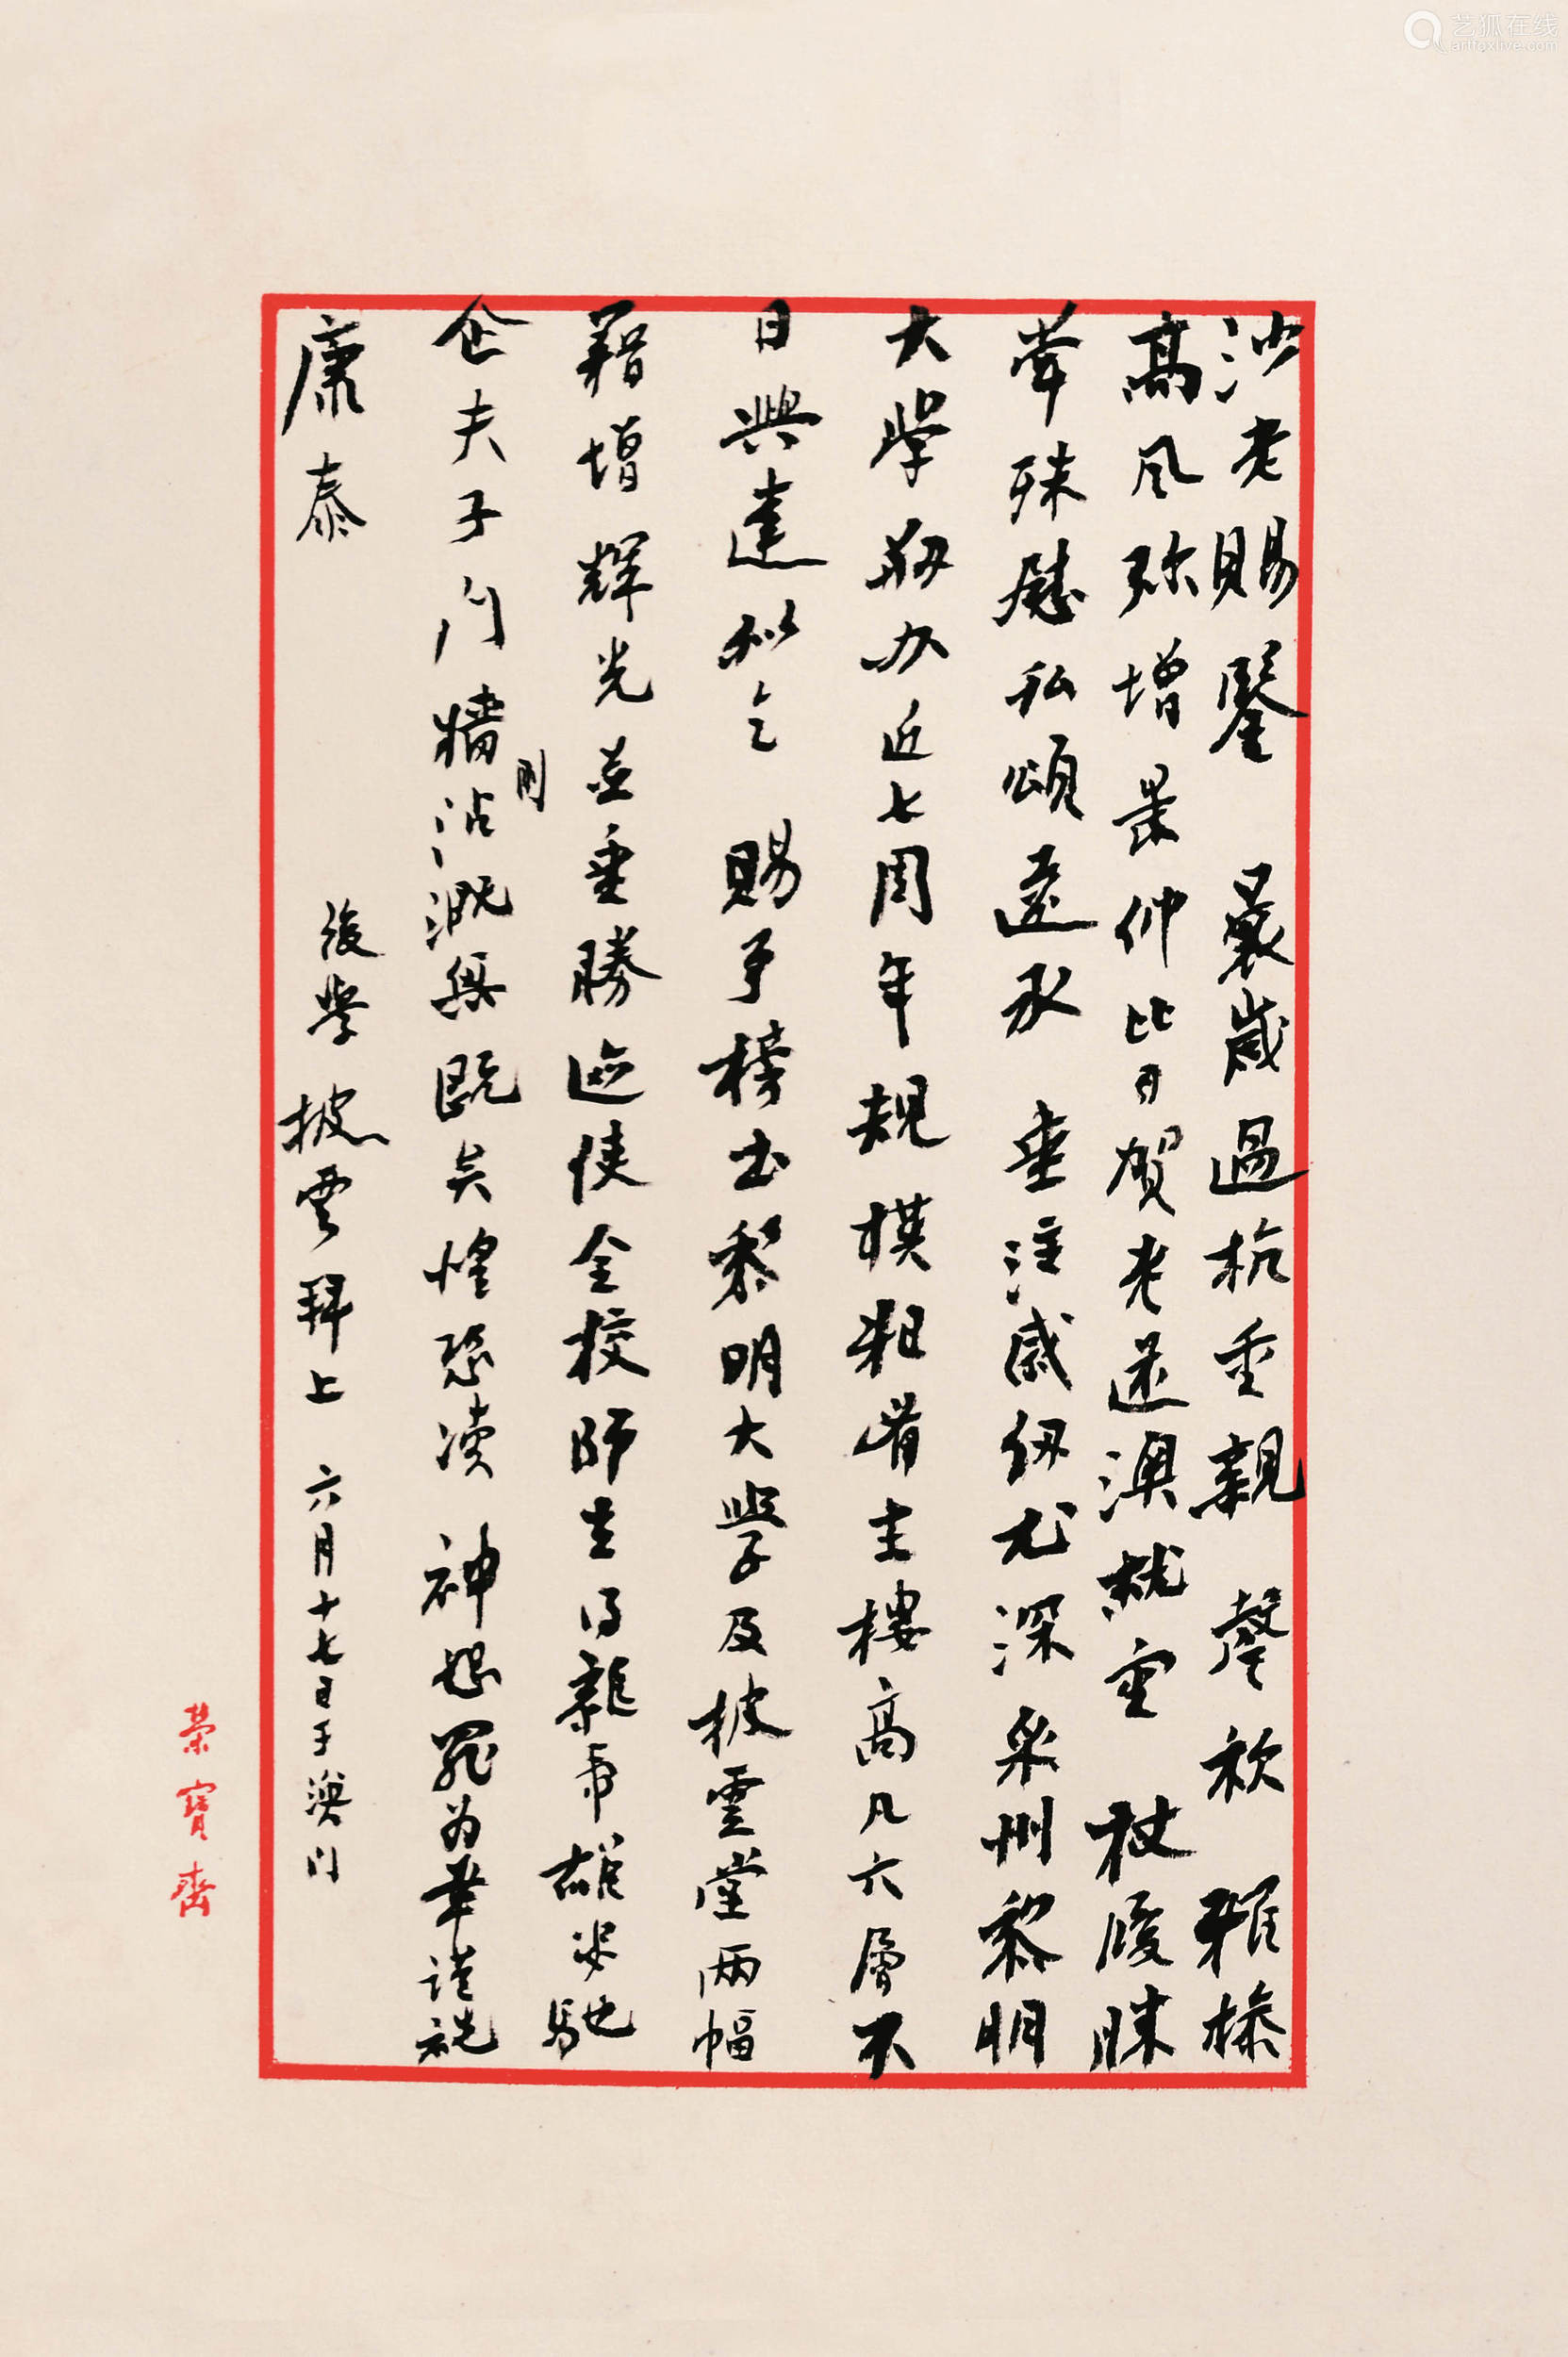 沙老賜鑒 曩歲過杭重親 謦欬 雅操
高風弥增景仰比日賀老还澳就重 杖履康
寧殊慰私頌遠承 垂注感紉尤深泉州黎明
大學刱办近七周年規模粗肴主樓高凡六層不
日興建拟乞 賜予榜书黎明大學及披雲堂兩幅
藉增輝光並垂勝迹使全校師生得龍帀雄步馳
企夫子门牆沾溉無既矣惶恐渎 神恕罪为幸謹祝
則
康泰
後學披雲拜上 六月十七日于澳门
榮寶齋
艺狐在线
artfoxlive.com